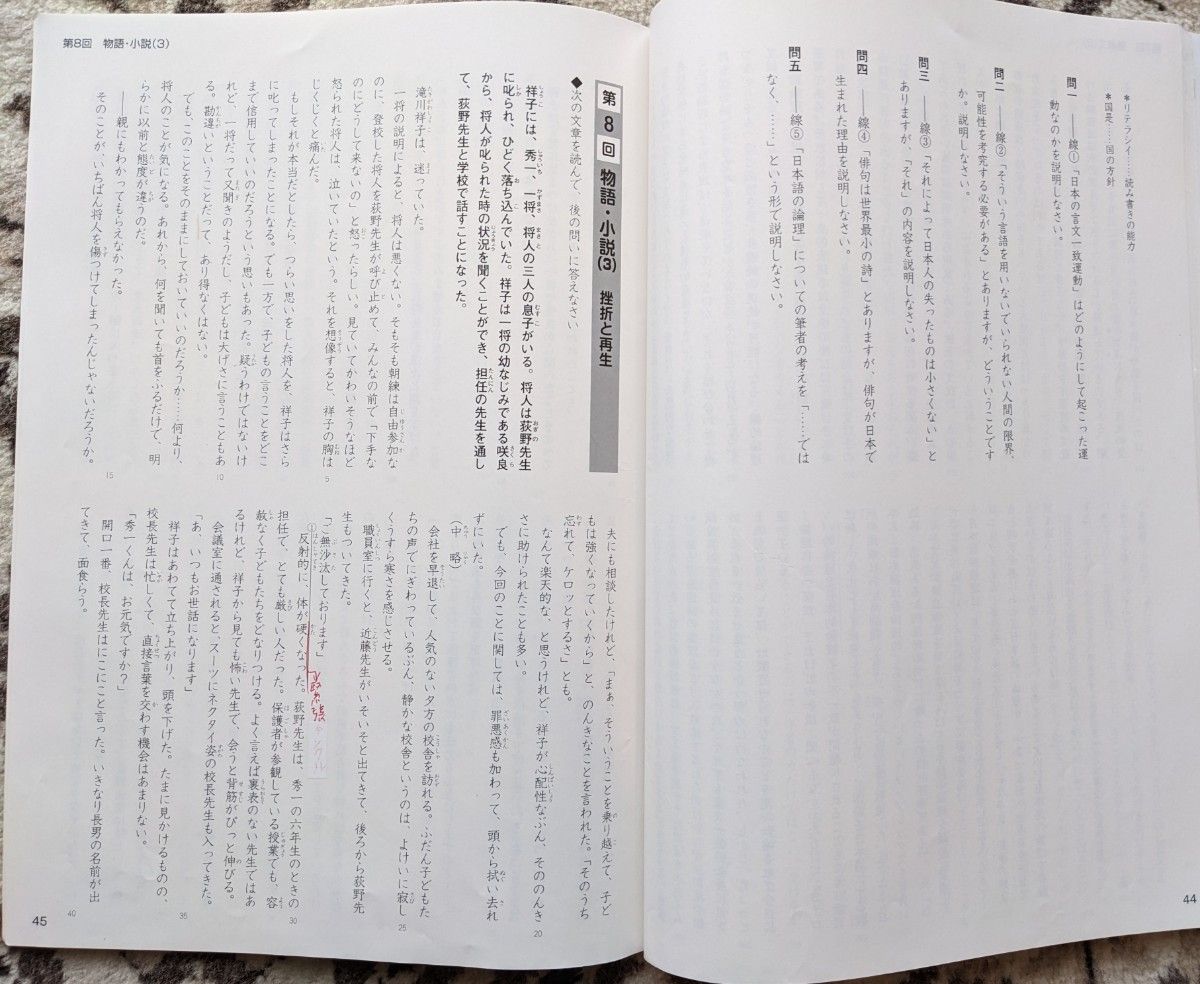 ＊リテラシイ……読み書きの能力
＊国是……国の方針
問一　――線①「日本の言文一致運動」はどのようにして起こった運
動なのかを説明しなさい。
問二　――線②「そういう言語を用いないでいられない人間の限界、
可能性を考究する必要がある」とありますが、どういうことです
か。説明しなさい。
問三　――線③「それによって日本人の失ったものは小さくない」と
ありますが、「それ」の内容を説明しなさい。
問四　――線④「俳句は世界最小の詩」とありますが、俳句が日本で
生まれた理由を説明しなさい。
問五　――線⑤「日本語の論理」についての筆者の考えを「……では
なく、……」という形で説明しなさい。
44
第8回　物語・小説(3)
第8回　物語・小説(3)　挫折と再生
◆次の文章を読んで、後の問いに答えなさい
祥子には、秀一、一将、将人の三人の息子がいる。将人は荻野先生
に叱られ、ひどく落ち込んでいた。祥子は一将の幼なじみである咲良
から、将人が叱られた時の状況を聞くことができ、担任の先生を通し
て、荻野先生と学校で話すことになった。
滝川祥子は、迷っていた。
一将の説明によると、将人は悪くない。そもそも朝練は自由参加な
のに、登校した将人を荻野先生が呼び止めて、みんなの前で「下手な
のにどうして来ないの」と怒ったらしい。見ていてかわいそうなほど
怒られた将人は、泣いていたという。それを想像すると、祥子の胸は
じくじくと痛んだ。
もしそれが本当だとしたら、つらい思いをした将人を、祥子はさら
に叱ってしまったことになる。でも一方で、子どもの言うことをどこ
まで信用していいのだろうという思いもあった。疑うわけではないけ
れど、一将だって又聞きのようだし、子どもは大げさに言うこともあ
る。勘違いということだって、あり得なくはない。
でも、このことをそのままにしておいていいのだろうか……何より、
将人のことが気になる。あれから、何を聞いても首をふるだけで、明
らかに以前と態度が違うのだ。
――親にもわかってもらえなかった。
そのことが、いちばん将人を傷つけてしまったんじゃないだろうか。
5
10
15
夫にも相談したけれど、「まぁ、そういうことを乗り越えて、子ど
もは強くなっていくから」と、のんきなことを言われた。「そのうち
忘れて、ケロッとするさ」とも。
なんて楽天的な、と思うけれど、祥子が心配性なぶん、そののんき
さに助けられたことも多い。
でも、今回のことに関しては、罪悪感も加わって、頭から拭い去れ
ずにいた。
（中　略）
会社を早退して、人気のない夕方の校舎を訪れる。ふだん子どもた
ちの声でにぎわっているぶん、静かな校舎というのは、よけいに寂し
くうすら寒さを感じさせる。
職員室に行くと、近藤先生がいそいそと出てきて、後ろから荻野先
生もついてきた。
「ご無沙汰しております」
①反射的に、体が硬くなった。荻野先生は、秀一の六年生のときの
担任で、とても厳しい人だった。保護者が参観している授業でも、容
赦なく子どもたちをどなりつける。よく言えば裏表のない先生ではあ
るけれど、祥子から見ても怖い先生で、会うと背筋がぴっと伸びる。
会議室に通されると、スーツにネクタイ姿の校長先生も入ってきた。
「あ、いつもお世話になります」
祥子はあわてて立ち上がり、頭を下げた。たまに見かけるものの、
校長先生は忙しくて、直接言葉を交わす機会はあまりない。
「秀一くんは、お元気ですか？」
開口一番、校長先生はにこにこと言った。いきなり長男の名前が出
てきて、面食らう。
20
25
30
35
40
緊張
45